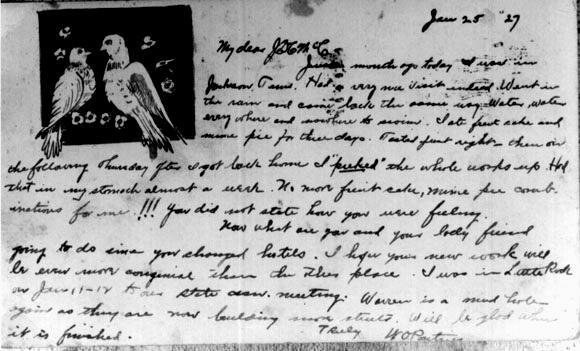 Jan 25 27
My dear J H McC
Just a month ago today I was in
Jackson, Tenn. Had a very nice visit indeed. Went in
the rain and came back the same way. Water, water
every where and nowhere to swim. I ate fruit cake and
mince pie for three days. Tasted just right - then on
the following Thursday after I got back home I "puked" the whole works up. Had
that in my stomach almost a week. No more fruit cake, mince pie comb
inations for me!!! You did not state how you were feeling.
Now what are you and your lady friend
going to do since you changed hotels. I hope your new work will
be even more congenial than the other place. I was in Little Rock
on Jan, 11-12 to our state assn. meeting. Warren is a mud hole
again as they are now building more streets. Will be glad when
it is finished. Truly